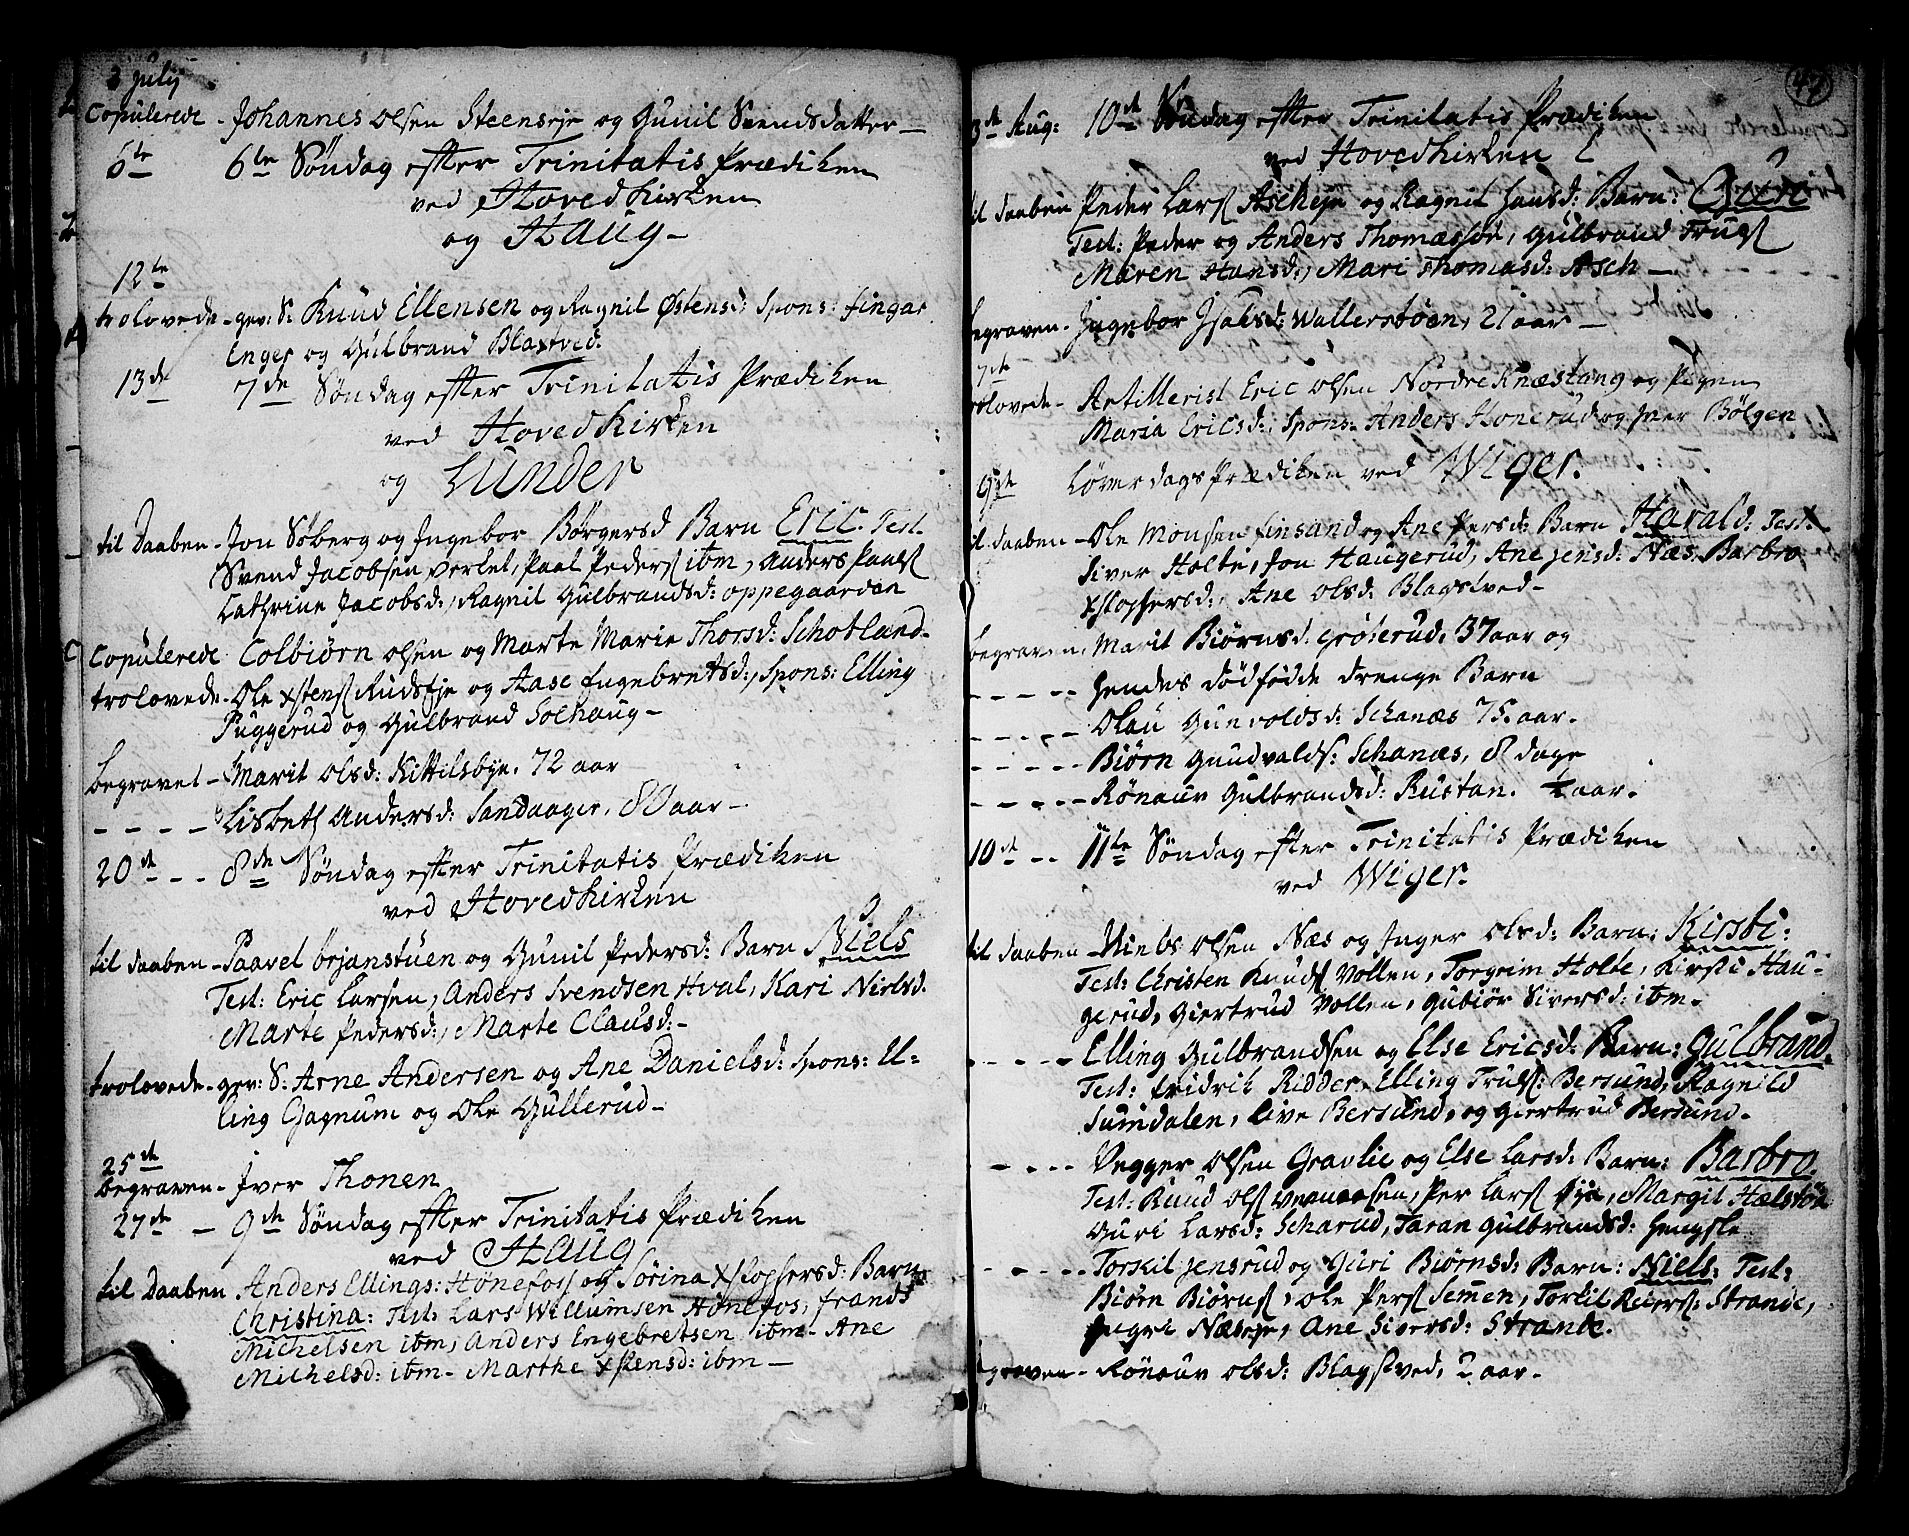 2 July
Copulerede - Johannes Olsen Steenseje og Gunil Svendsdatter -
6te 6te Søndag efter Trinitatis Prædiken
ved Hovedkirken
og Haug -
12te
trolovede - gev: S: Knud Ellensen og Ragnil Østensd: Spons: Fingar
Enger og Gulbrand Blaxtved.
13de 7de Søndag efter Trinitatis Prædiken
ved Hovedkirken
og Lunder
til Daaben - Jon Søberg og Ingebor Børgersd Barn Eric. Test.
Svend Jacobsen Verket, Paal Peders ibm, Anders Paals
Cathrine Jacobsd:, Ragnil Gulbrandsd: oppegaarden
Copulerede Colbiørn Olsen og Marte Marie Thorsd: Schotland -
trolovede - Ole Xstens Rudseje og Aase Engebretsd:, Spons: Elling
Puggerud og Gulbrand Solhaug -
begravet - Marit Olsd: Kittilsbye. 72 aar
- - - - Lisbeth Andersd: Sandaager, 80 aar -
20de - - 8de Søndag efter Trinitatis Prædiken
ved Hovedkirken
til Daaben - Paavel Ørjanstuen og Gunil Pedersd: Barn Niels
Test: Eric Larsen, Anders Svendsen Hval, Kari Nielsd.
Marte Pedersd:, Marte Clausd: -
trolovede - gev: S: Arne Andersen og Ane Danielsd: Spons: El-
ling Gagnum og Ole Gullerud -
25de
begraven - Iver Thonen
27de - 9de Søndag efter Trinitatis Prædiken
ved Haug
til Daaben Anders Ellings: Hønefoss og Sørina Xstophersd: Barn
Christina: Test: Lars Willumsen Hønefos, Frands
Michelsen ibm, Anders Engebretsen ibm - Ane
Michelsd: ibm - Marthe Xstensd: ibm -
47
3de Aug: 10de Søndag efter Trinitatis Prædiken
ved Hovedkirken
til Daaben Peder Lars Ascheje og Ragnil Hansd: Barn: Guri
Test: Peder og Anders Thomassøn, Gulbrand Truls
Maren Hansd:, Mari Thomasd: Asch -
begraven - Ingebor Isaksd: Wallerstøen, 21 aar -
7de
trolovede - Artillerist Eric Olsen Nordre Knæstang og Pigen
Maria Ericsd:, Spons: Anders Honerud og Iver Bölgen
9de Løverdags Prædiken ved Wiger.
til Daaben - Ole Monssen Finsand og Ane Persd: Barn Harald: Test:
Siver Holte, Jon Haugerud, Ane Jensd: Næs, Barbro
Xstophersd:, Ane Olsd: Blagstved -
begraven, Marit Biørnsd. Grøterud. 37 aar og
- - - - - Hendes dødfødde drenge Barn
- - - - - Olau Gunvoldsd: Schanæs 75. aar.
- - - - - Biørn Gundvalds: Schanæs, 8 dage
- - - - - Rønauv Gulbrandsd: Rustan. ½ aar.
10de - - 11te Søndag efter Trinitatis Prædiken
ved Wiger.
til Daaben - Niels Olsen Næs og Inger Olsd: Barn: Kirsti:
Test: Christen Knuds Vollen, Torgrim Holte, Kirsti Hau-
gerud, Giertrud Vollen, Gubiør Siversd: ibm.
- - - - - Elling Gulbrandsen og Else Ericsd: Barn: Gulbrand.
Test: Fridrik Ridder, Elling Truls: Bersund, Ragnild
Sumdalen, Live Bersund, og Giertrud Bersund.
- - - - Vegger Olsen Gravlie og Else Larsd: Barn: Barbro.
Test: Knud Ols, Per Lars, Margit Hælstøn
Guri Larsd: Scharud, Taran Gulbrandsd: Hengsle
- - - - - Torkil Jensrud og Guri Biørnsd: Barn: Niels: Test:
Biørn Biørns, Ole Pers Semmen, Torkil Reiers: Strande,
Ingri Næseje, Ane Siversd: Strande.
begraven - Rønauv Olsd: Blagstved, 2 aar.